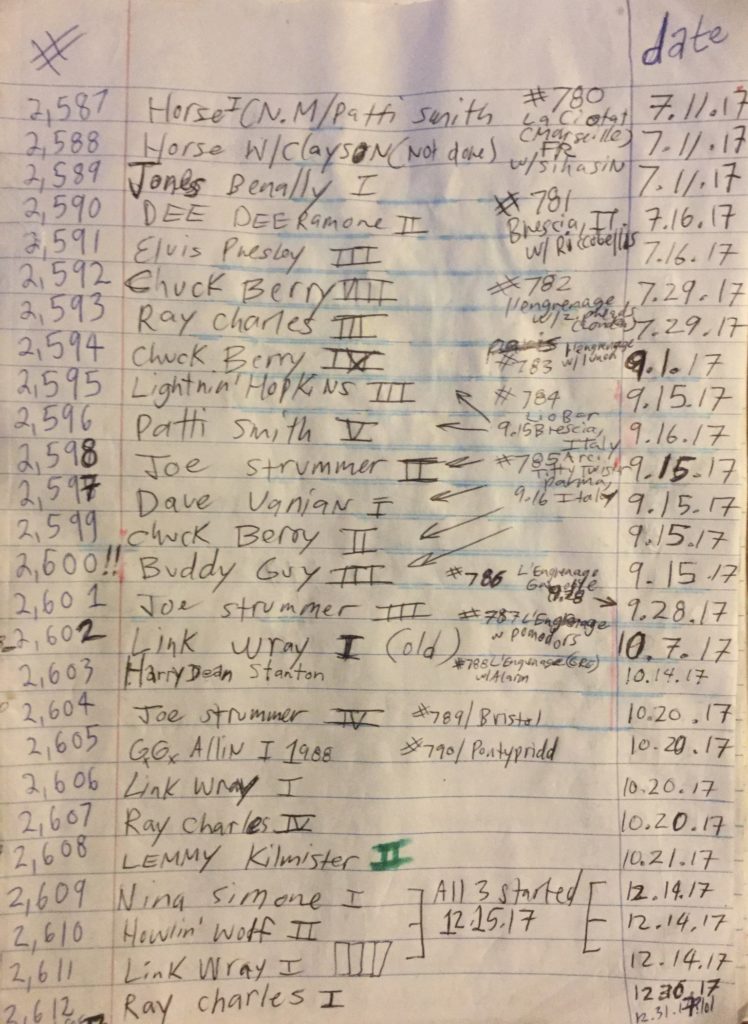 # date
2,587 Horse I (N.M/Patti Smith #780 La Ciotat 7.11.17
2,588 Horse W/Clayson (Not done) (Marseille) FR 7.11.17
2,589 Jones Benally I w/sihasin 7.11.17
2,590 DEE DEE Ramone II #781 Brescia, IT. 7.16.17
2,591 Elvis Presley III w/ 7.16.17
2,592 Chuck Berry #782 l'engrenage 7.29.17
2,593 Ray Charles III w/ (London) 7.29.17
2,594 Chuck Berry IX #783 l'engrenage w/ 9.1.17
2,595 Lightnin' Hopkins III #784 9.15.17
2,596 Patti Smith V Lio Bar 9.15 Brescia, Italy 9.16.17
2,598 Joe Strummer II #785 Arci Titty Twister 9.15.17
2,597 Dave Vanian I Parma, 9.16 Italy 9.15.17
2,599 Chuck Berry II 9.15.17
2,600!! Buddy Guy III #786 L'Engrenage 9.15.17
2,601 Joe Strummer III 9.28 9.28.17
2,602 Link Wray I (old) #787 L'Engrenage w pomodors 10.7.17
2,603 Harry Dean Stanton #788 L'Engrenage (GRE) w/Alarm 10.14.17
2,604 Joe Strummer IV #789/Bristol 10.20.17
2,605 GxGx Allin I 1988 #790/Pontypridd 10.20.17
2,606 Link Wray I 10.20.17
2,607 Ray Charles IV 10.20.17
2,608 LEMMY Kilmister II 10.21.17
2,609 Nina Simone I All 3 started 12.14.17
2,610 Howlin' Wolf II 12.15.17 12.14.17
2,611 Link Wray I 12.14.17
2,612 Ray Charles I 12.30.17
12.31.17